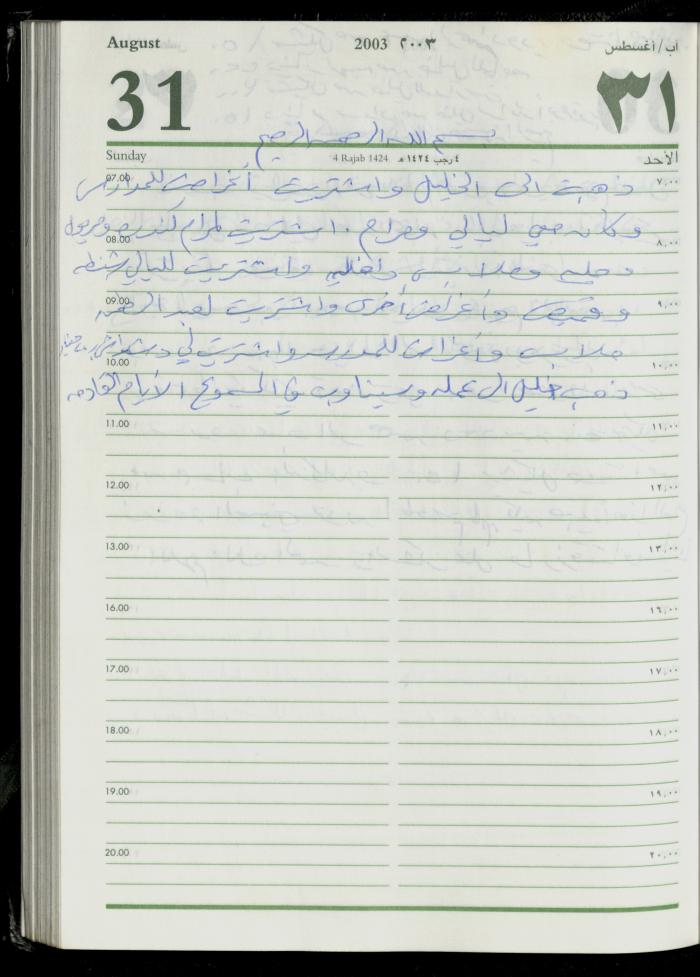 August 2003 ٢٠٠٣ آب/أغسطس
31 ٣١
بسم الله الرحمن الرحيم
Sunday 4 Rajab 1424 ٤ رجب ١٤٢٤ هـ الأحد
07.00 ٧,٠٠
ذهبت الى الخليل واشتريت أغراض للمدارس
وكان معي ليالي ومرام . اشتريت لمرام كندره ومريول
08.00 ٨,٠٠
وملابس داخليه واشتريت لليالي شنطه
09.00 ٩,٠٠
وقميص وأغراض أخرى واشتريت لعبد الرحمن
ملابس وأغراض للمدرسه واشتريت لي
10.00 ١٠,٠٠
ذهب خليل الى عمله وسيناوب في السموع الأيام القادمه
11.00 ١١,٠٠
12.00 ١٢,٠٠
13.00 ١٣,٠٠
16.00 ١٦,٠٠
17.00 ١٧,٠٠
18.00 ١٨,٠٠
19.00 ١٩,٠٠
20.00 ٢٠,٠٠